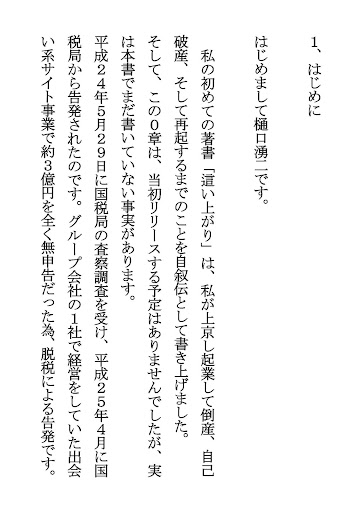 1、はじめに
はじめまして樋口湧二です。
私の初めての著書「這い上がり」は、私が上京し起業して倒産、自己
破産、そして再起するまでのことを自叙伝として書き上げました。
そして、この０章は、当初リリースする予定はありませんでしたが、実
は本書でまだ書いていない事実があります。
平成２４年５月２９日に国税局の査察調査を受け、平成２５年４月に国
税局から告発されたのです。グループ会社の１社で経営をしていた出会
い系サイト事業で約３億円を全く無申告だった為、脱税による告発です。